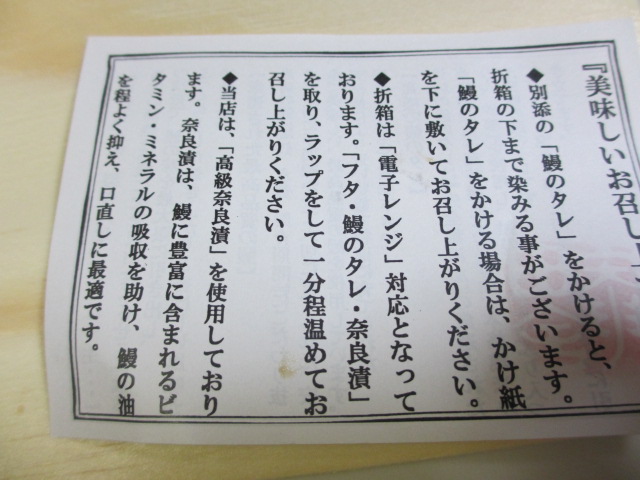 『美味しいお召し上
◆別添の「鰻のタレ」をかけると、
折箱の下まで染みる事がございます。
「鰻のタレ」をかける場合は、かけ紙
を下に敷いてお召し上がりください。
◆折箱は「電子レンジ」対応となって
おります。「フタ・鰻のタレ・奈良漬」
を取り、ラップをして一分程温めてお
召し上がりください。
◆当店は、「高級奈良漬」を使用しており
ます。奈良漬は、鰻に豊富に含まれるビ
タミン・ミネラルの吸収を助け、鰻の油
を程よく抑え、口直しに最適です。